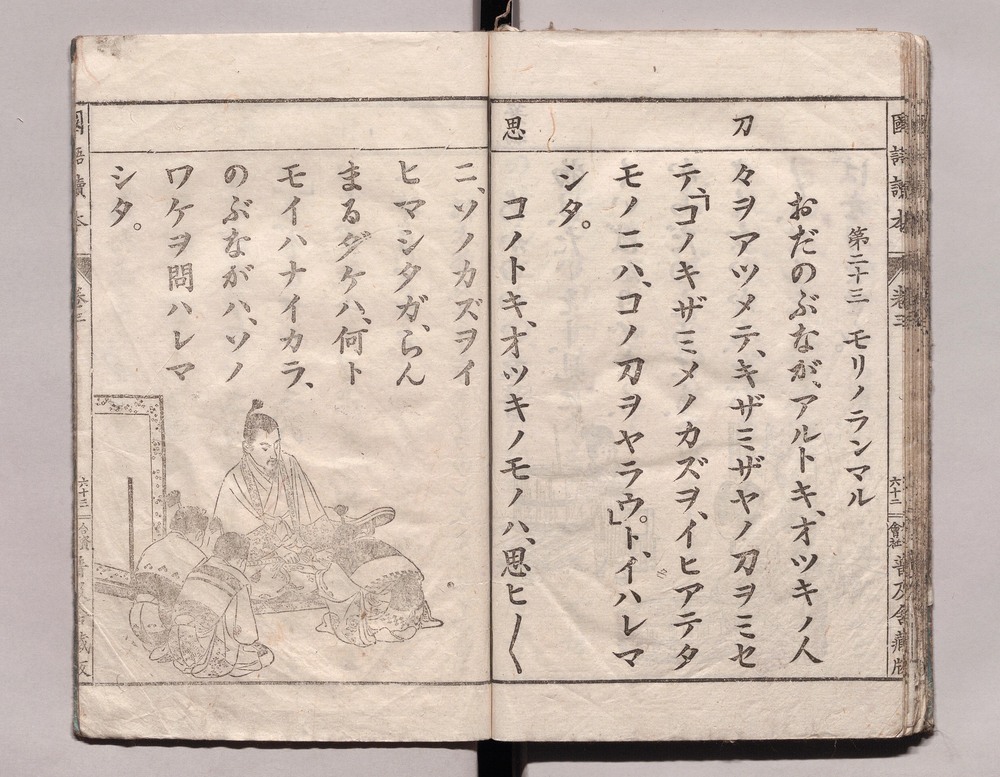 國語讀本 卷三 六十二 會社 普及舍藏版
刀
思
第二十三 モリノランマル
おだのぶながゞ、アルトキ、オツキノ人
々ヲアツメテ、キザミザヤノ刀ヲミセ
テ、「コノキザミメノカズヲ、イヒアテタ
モノニハ、コノ刀ヲヤラウ。」ト、イハレマ
シタ。
コノトキ、オツキノモノハ、思ヒ〱
ニ、ソノカズヲイ
ヒマシタガ、らん
まるダケハ、何ト
モイハナイカラ、
のぶながハ、ソノ
ワケヲ問ハレマ
シタ。
國語讀本 卷三 六十三 藏版